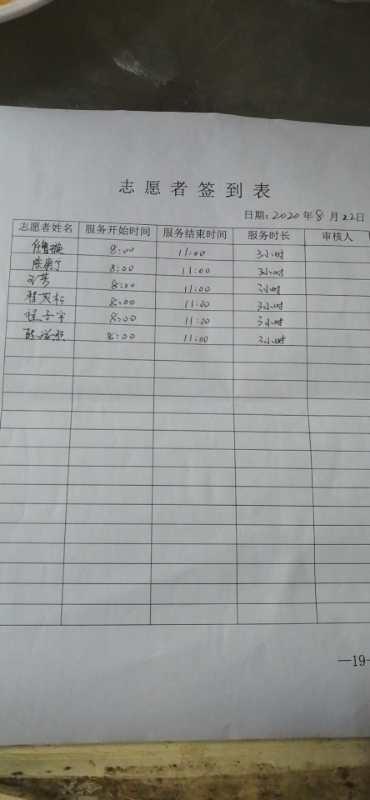 志愿者签到表
日期: 2020 年 8 月 22 日
志愿者姓名 服务开始时间 服务结束时间 服务时长 审核人
8:00 11:00 3小时
8:00 11:00 3小时
8:00 11:00 3小时
8:00 11:00 3小时
8:00 11:00 3小时
8:00 11:00 3小时
—19-